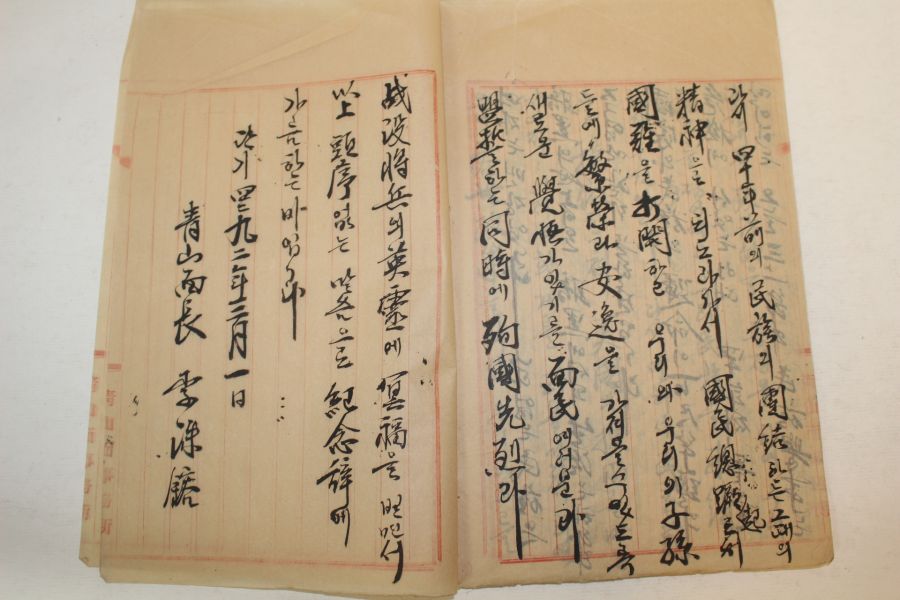 다시 四十年前의 民族의 團結하든 그때의
精神을 되도라가서 國民總蹶起로서
國難을 打開하고 우리와 우리의 子孫
들에 繁榮과 安逸을 가저올수있도록
새로운 覺悟가있기를 面民여러분과
盟誓하는 同時에 殉國先烈과
战没將兵의 英靈에 冥福을 빌면서
以上 頭序없는 말슴으로 紀念辞에
가름하는 바입니다
단기 四二九二年三月一日
青山面長 李